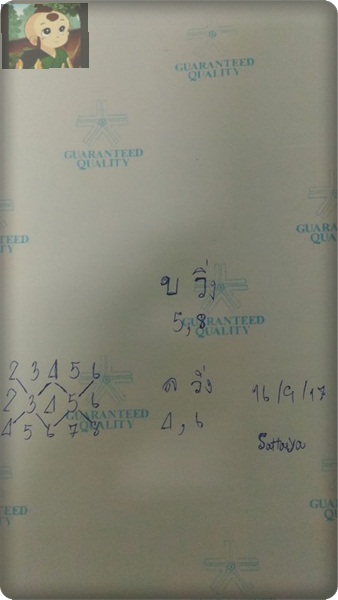 GUARANTEED
QUALITY
GUARANTEED
QUALITY
บ วิ่ง
5,8
GUARANTEED
QUALITY
ล วิ่ง
4,6
2 3 4 5 6
2 3 4 5 6
4 5 6 7 8
16/9/17
GUARANTEED
QUALITY
GUARANTEED
QUALITY